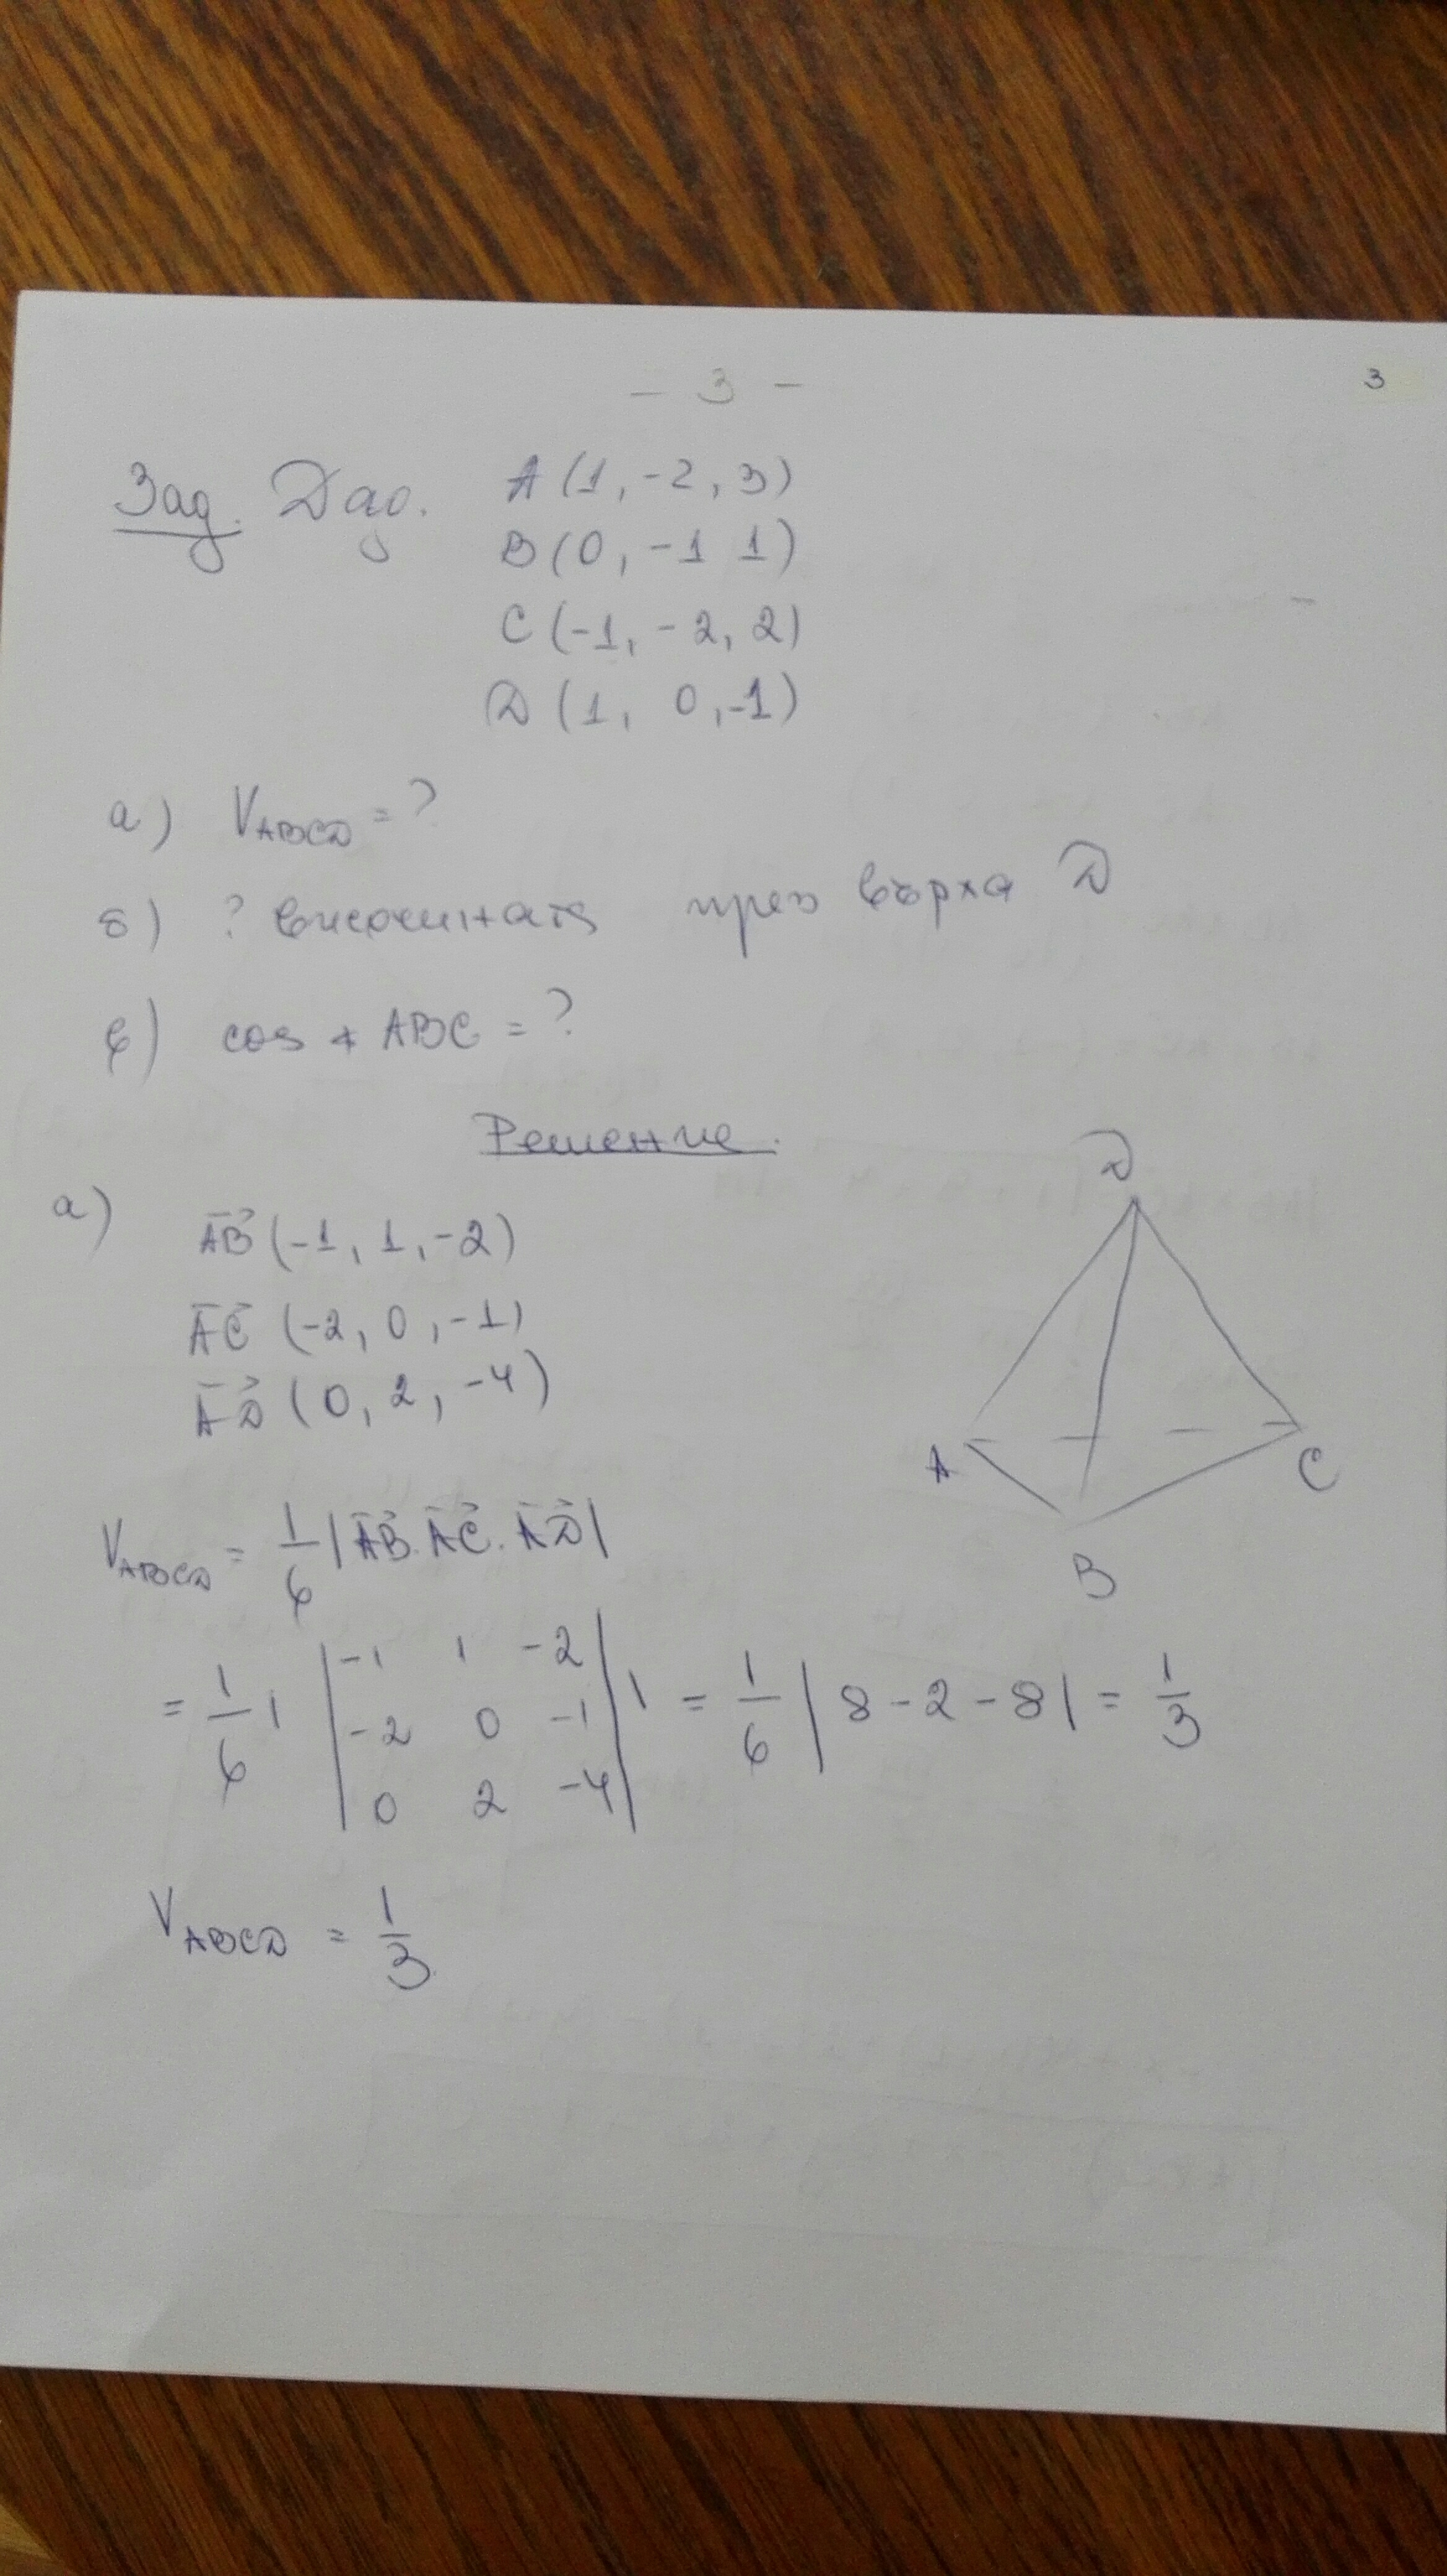 - 3 -
3
Зад. Дад. A (1, -2, 3)
B (0, -1 1)
C (-1, -2, 2)
D (1, 0, -1)
а) V_ABCD = ?
б) ? височината през върха D
в) cos ∢ ABC = ?
Решение.
а)
AB→ (-1, 1, -2)
AC→ (-2, 0, -1)
AD→ (0, 2, -4)
D
A
C
B
V_ABCD = 1/6 |AB→. AC→. AD→|
= 1/6 | |-1 1 -2
-2 0 -1
0 2 -4| | = 1/6 | 8 - 2 - 8 | = 1/3
V_ABCD = 1/3